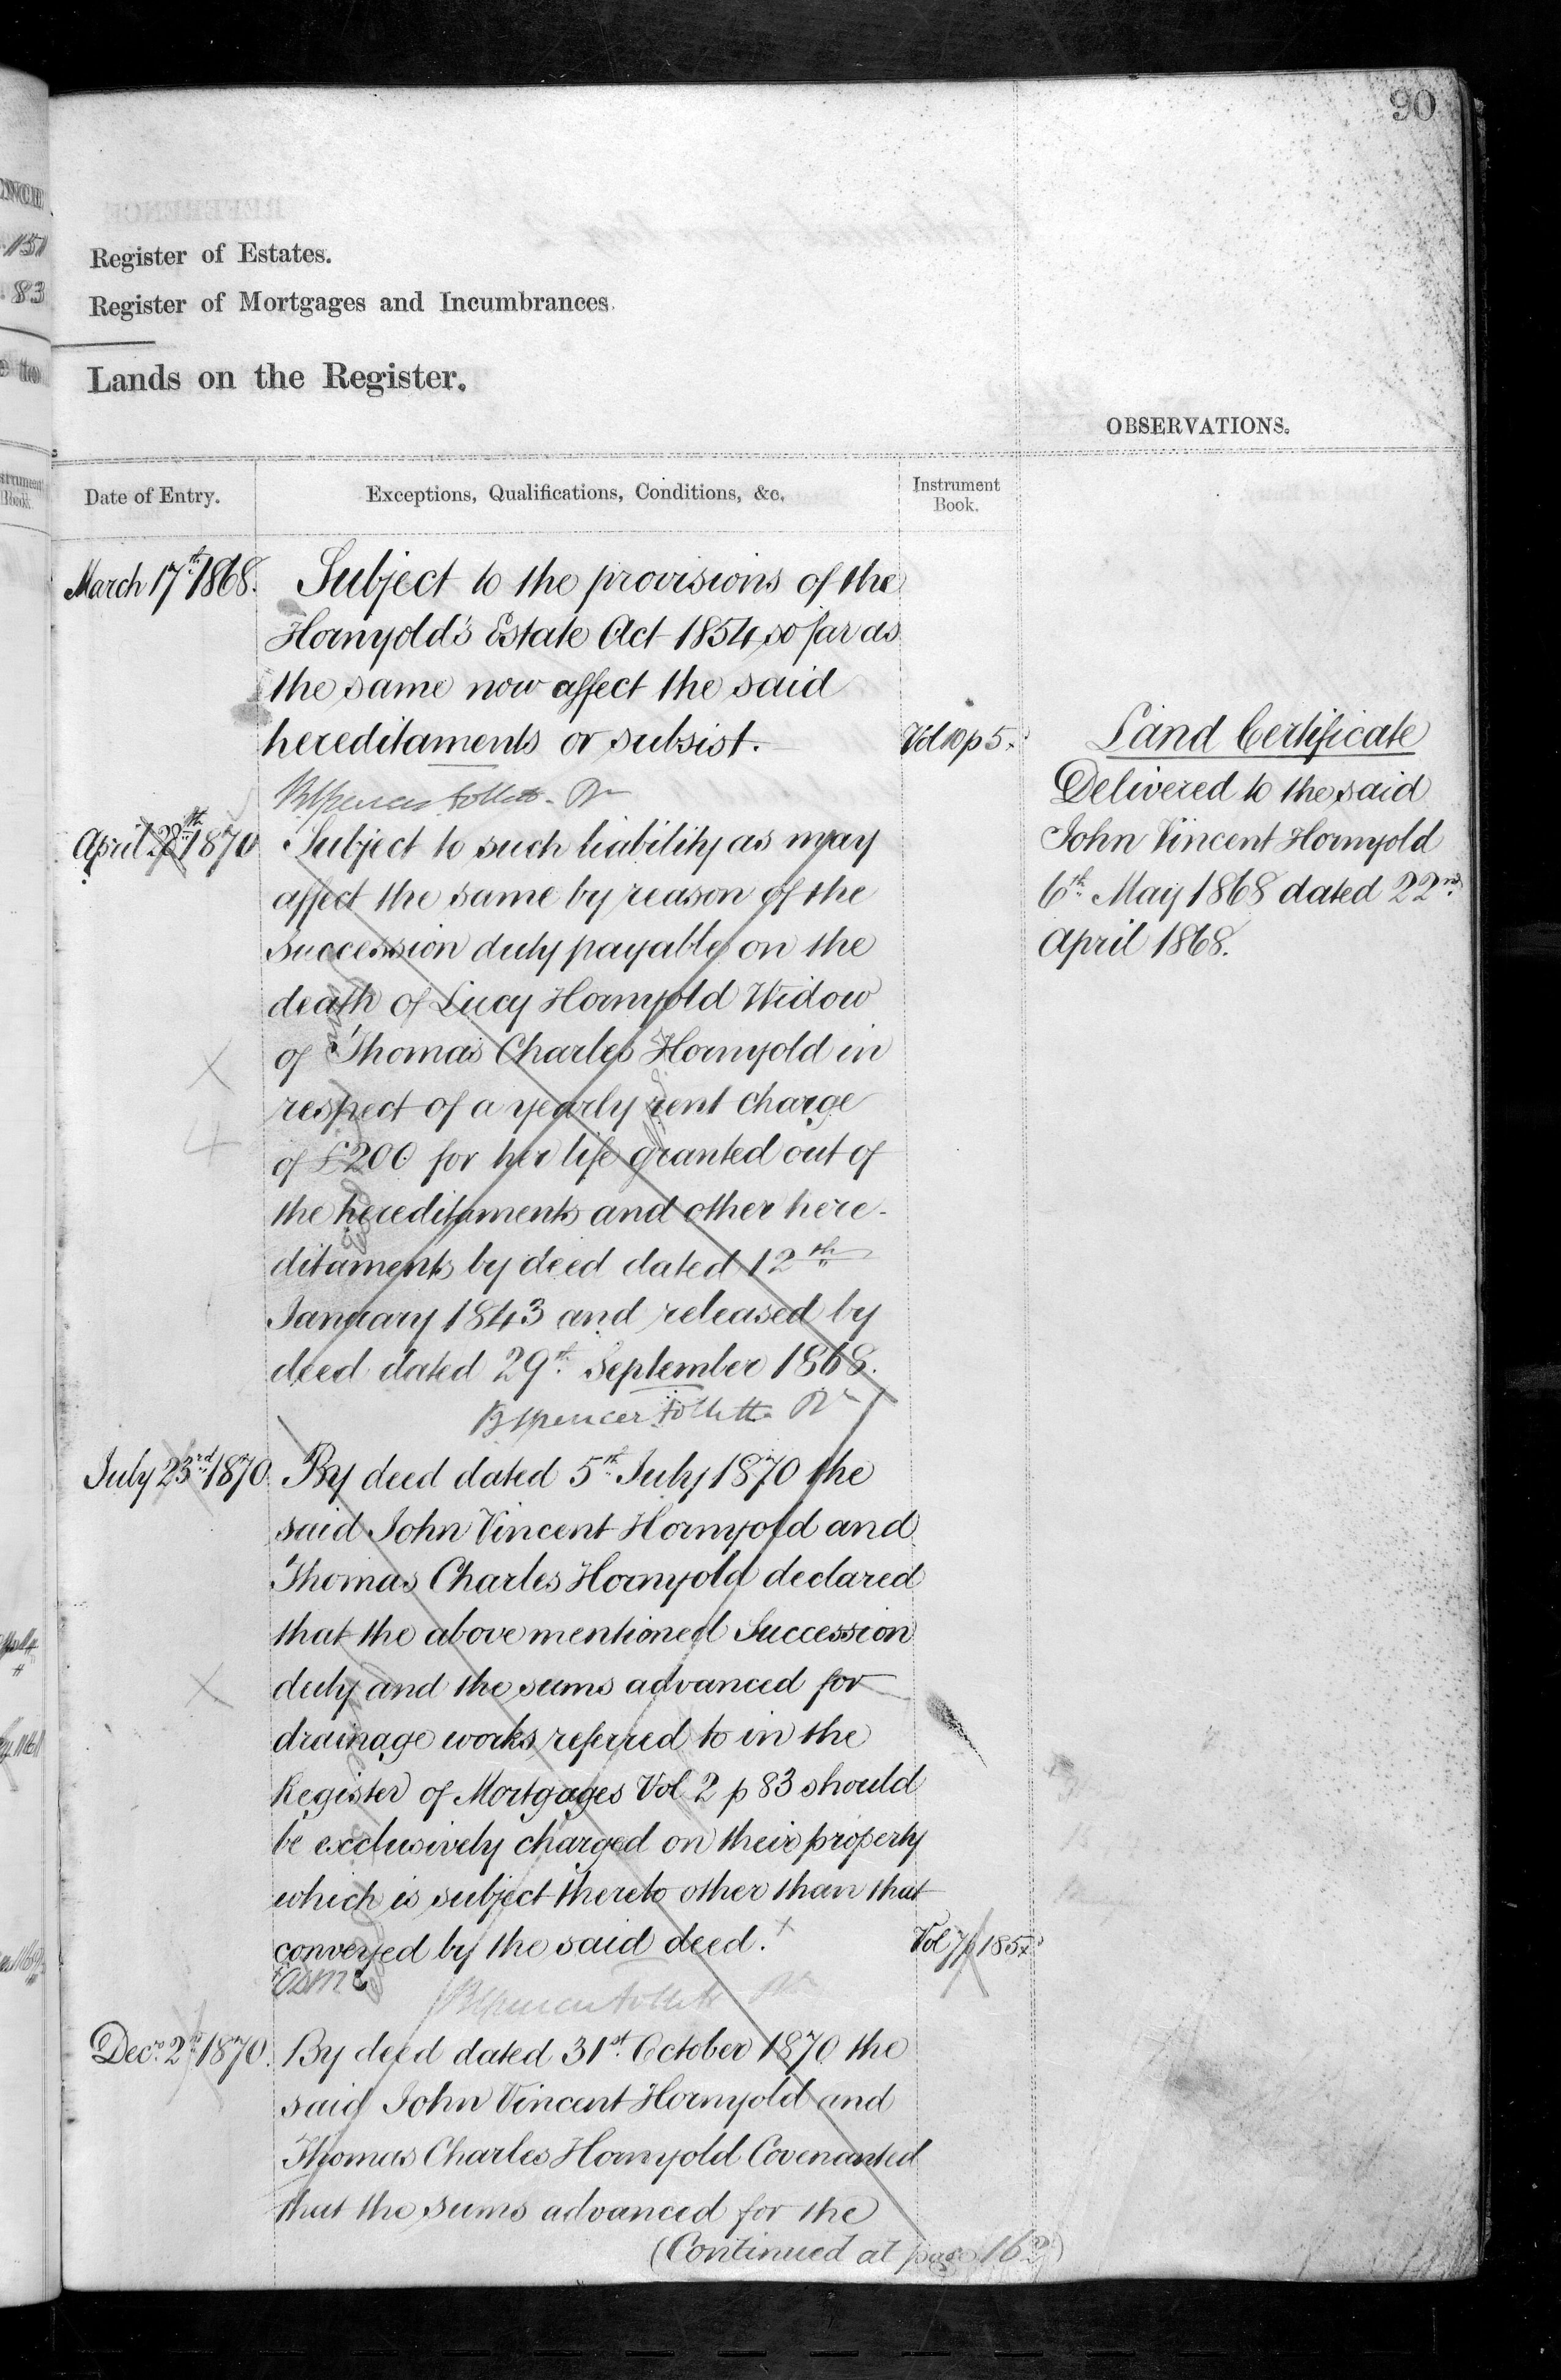 90
Register of Estates.
Register of Mortgages and Incumbrances.
Lands on the Register.
OBSERVATIONS.
Date of Entry.
Exceptions, Qualifications, Conditions, &c.
Instrument
Book.
March 17th 1868.
Subject to the provisions of the
Hornyold's Estate Act 1854 so far as
the same now affect the said
hereditaments or subsist.
Vol 10 p 5.
B Spencer Follett Rr
April 1870
Subject to such liability as may
affect the same by reason of the
succession duty payable on the
death of Lucy Hornyold Widow
of Thomas Charles Hornyold in
respect of a yearly rent charge
of £200 for her life granted out of
the hereditaments and other here-
ditaments by deed dated 12th
January 1843 and released by
deed dated 29th September 1868.
B Spencer Follett Rr
July 23rd 1870.
By deed dated 5th July 1870 the
said John Vincent Hornyold and
Thomas Charles Hornyold declared
that the above mentioned Succession
duty and the sums advanced for
drainage works referred to in the
Register of Mortgages Vol 2 p 83 should
be exclusively charged on their property
which is subject thereto other than that
conveyed by the said deed.
B Spencer Follett Rr
Decr 2nd 1870.
By deed dated 31st October 1870 the
said John Vincent Hornyold and
Thomas Charles Hornyold Covenanted
that the sums advanced for the
(Continued at page
Land Certificate
Delivered to the said
John Vincent Hornyold
6th May 1868 dated 22nd
April 1868.